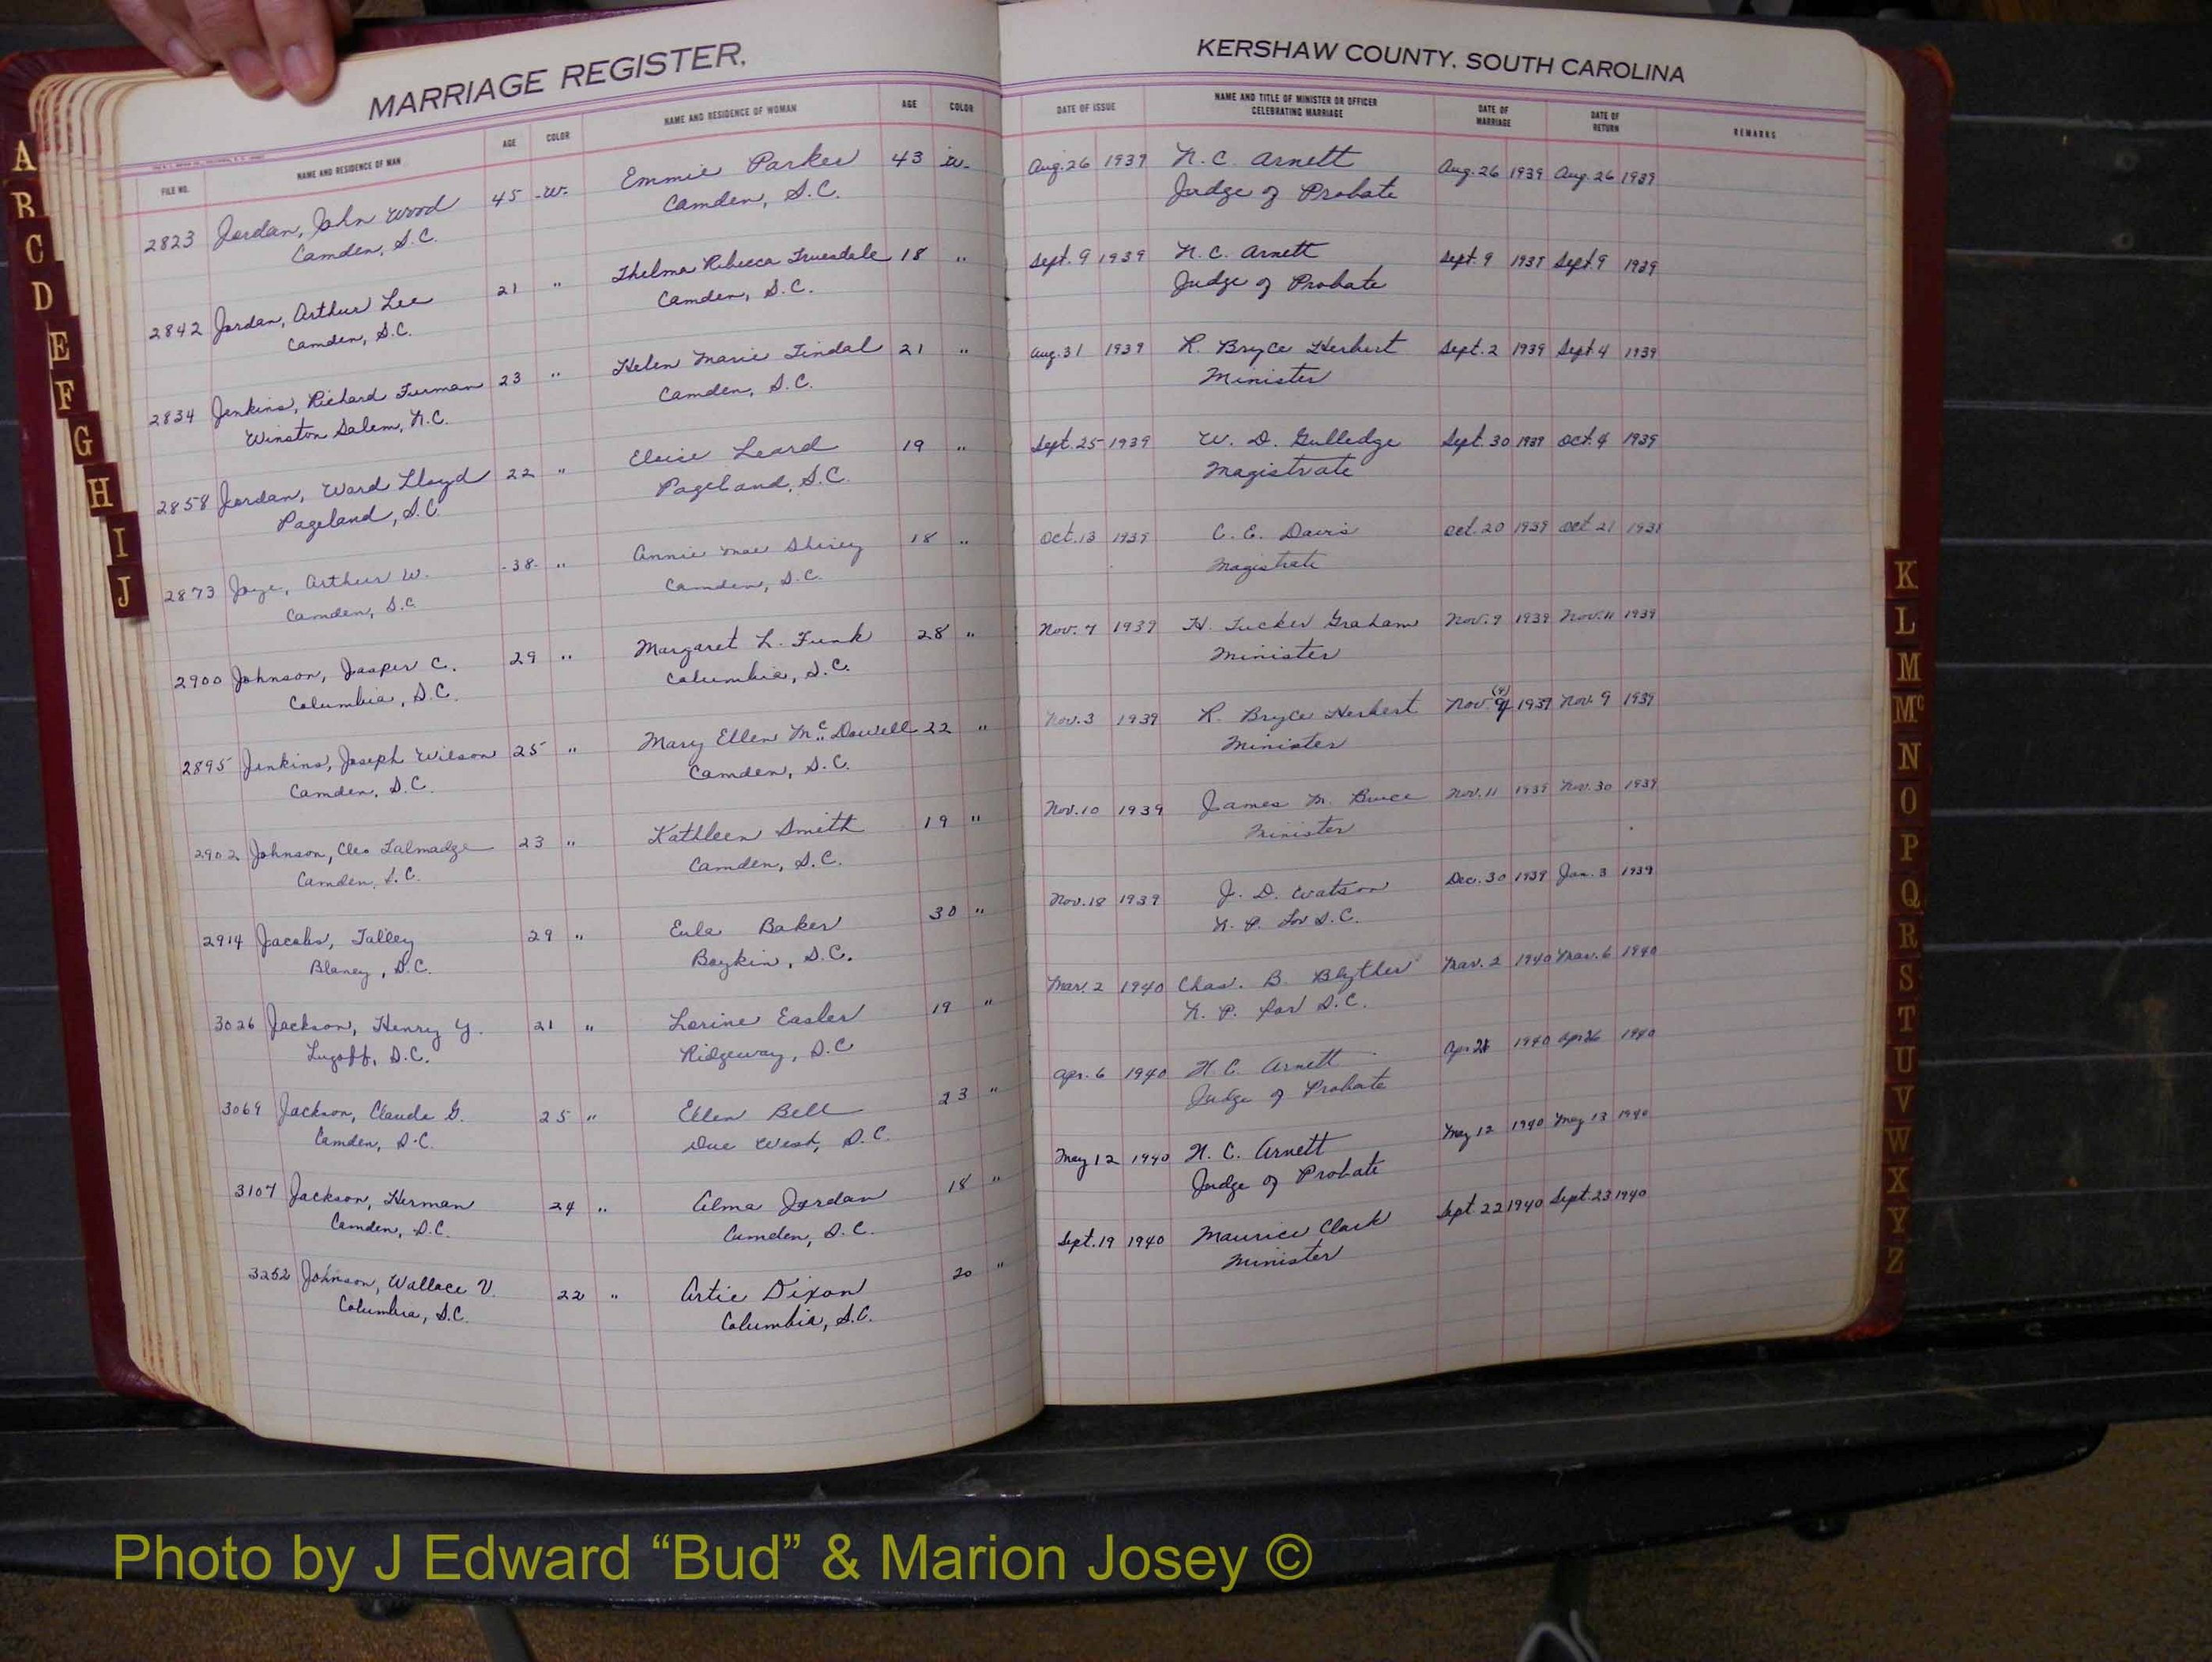 MARRIAGE REGISTER.
FILE NO. NAME AND RESIDENCE OF MAN AGE COLOR NAME AND RESIDENCE OF WOMAN AGE COLOR
2823 Jordan, John Wood 45 -W- Emmie Parker 43 W-
Camden, S.C. Camden, S.C.
2842 Jordan, Arthur Lee 21 " Thelma Rebecca Truesdale 18 "
Camden, S.C. Camden, S.C.
2834 Jenkins, Richard Furman 23 " Helen Marie Tindal 21 "
Winston Salem, N.C. Camden, S.C.
2858 Jordan, Ward Lloyd 22 " Elsie Leard 19 "
Pageland, S.C. Pageland, S.C.
2873 Joye, Arthur W. -38- " Annie Mae Shirey 18 "
Camden, S.C. Camden, S.C.
2900 Johnson, Jasper C. 29 " Margaret L. Funk 28 "
Columbia, S.C. Columbia, S.C.
2895 Jenkins, Joseph Wilson 25 " Mary Ellen McDowell 22 "
Camden, S.C. Camden, S.C.
2902 Johnson, Cleo Talmadge 23 " Kathleen Smith 19 "
Camden, S.C. Camden, S.C.
2914 Jacobs, Talley 29 " Eula Baker 30 "
Blaney, S.C. Boykin, S.C.
3026 Jackson, Henry Y. 21 " Lorine Easler 19 "
Lugoff, S.C. Ridgeway, S.C
3069 Jackson, Claude G. 25 " Ellen Bell 23 "
Camden, S.C. Due West, S.C.
3107 Jackson, Herman 24 " Alma Jordan 18 "
Camden, S.C. Camden, S.C.
3252 Johnson, Wallace V. 22 " Artie Dixon 20 "
Columbia, S.C. Columbia, S.C.
KERSHAW COUNTY, SOUTH CAROLINA
DATE OF ISSUE NAME AND TITLE OF MINISTER OR OFFICER CELEBRATING MARRIAGE DATE OF MARRIAGE DATE OF RETURN REMARKS
Aug. 26 1939 N. C. Arnett Aug. 26 1939 Aug. 26 1939
Judge of Probate
Sept. 9 1939 N. C. Arnett Sept. 9 1939 Sept. 9 1939
Judge of Probate
Aug. 31 1939 R. Bryce Herbert Sept. 2 1939 Sept 4 1939
Minister
Sept. 25 1939 W. D. Gulledge Sept. 30 1939 Oct. 4 1939
Magistrate
Oct. 13 1939 C. E. Davis Oct. 20 1939 Oct 21 1939
Magistrate
Nov. 7 1939 H. Tucker Graham Nov. 9 1939 Nov. 11 1939
Minister
Nov. 3 1939 R. Bryce Herbert Nov. 1939 Nov. 9 1939
Minister
Nov. 10 1939 James M. Bruce Nov. 11 1939 Nov. 30 1939
Minister
Nov. 18 1939 J. D. Watson Dec. 30 1939 Jan. 3 1939
N. P. for S.C.
Mar. 2 1940 Chas. B. Blyther Mar. 2 1940 Mar. 6 1940
N. P. for S.C.
Apr. 6 1940 N. C. Arnett Apr 1940 Apr 26 1940
Judge of Probate
May 12 1940 N. C. Arnett May 12 1940 May 13 1940
Judge of Probate
Sept. 19 1940 Maurice Clark Sept. 22 1940 Sept. 23 1940
Minister
A
B
C
D
E
F
G
H
I
J
K
L
M
Mc
N
O
P
Q
R
S
T
U
V
W
X
Y
Z
Photo by J Edward “Bud” & Marion Josey ©